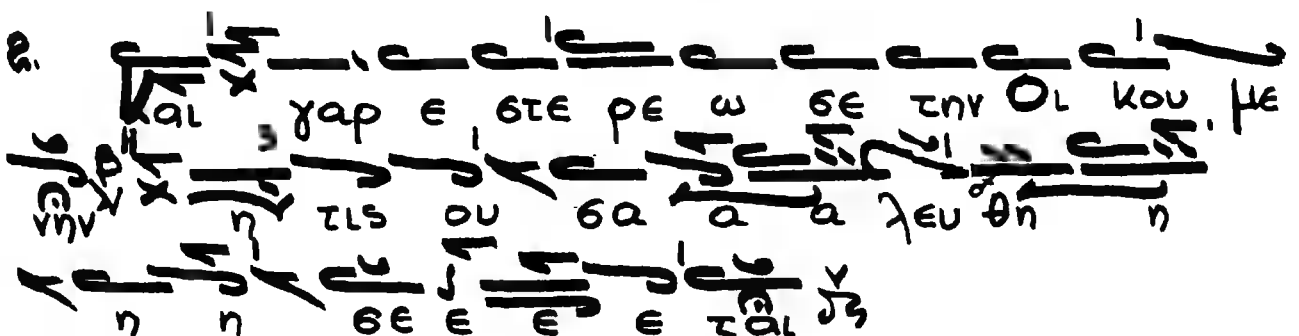 και γαρ ε στε ρε ω σε την Οι κου με
νην η τις ου σα α α λευ θη η
η η σε ε ε ε ται